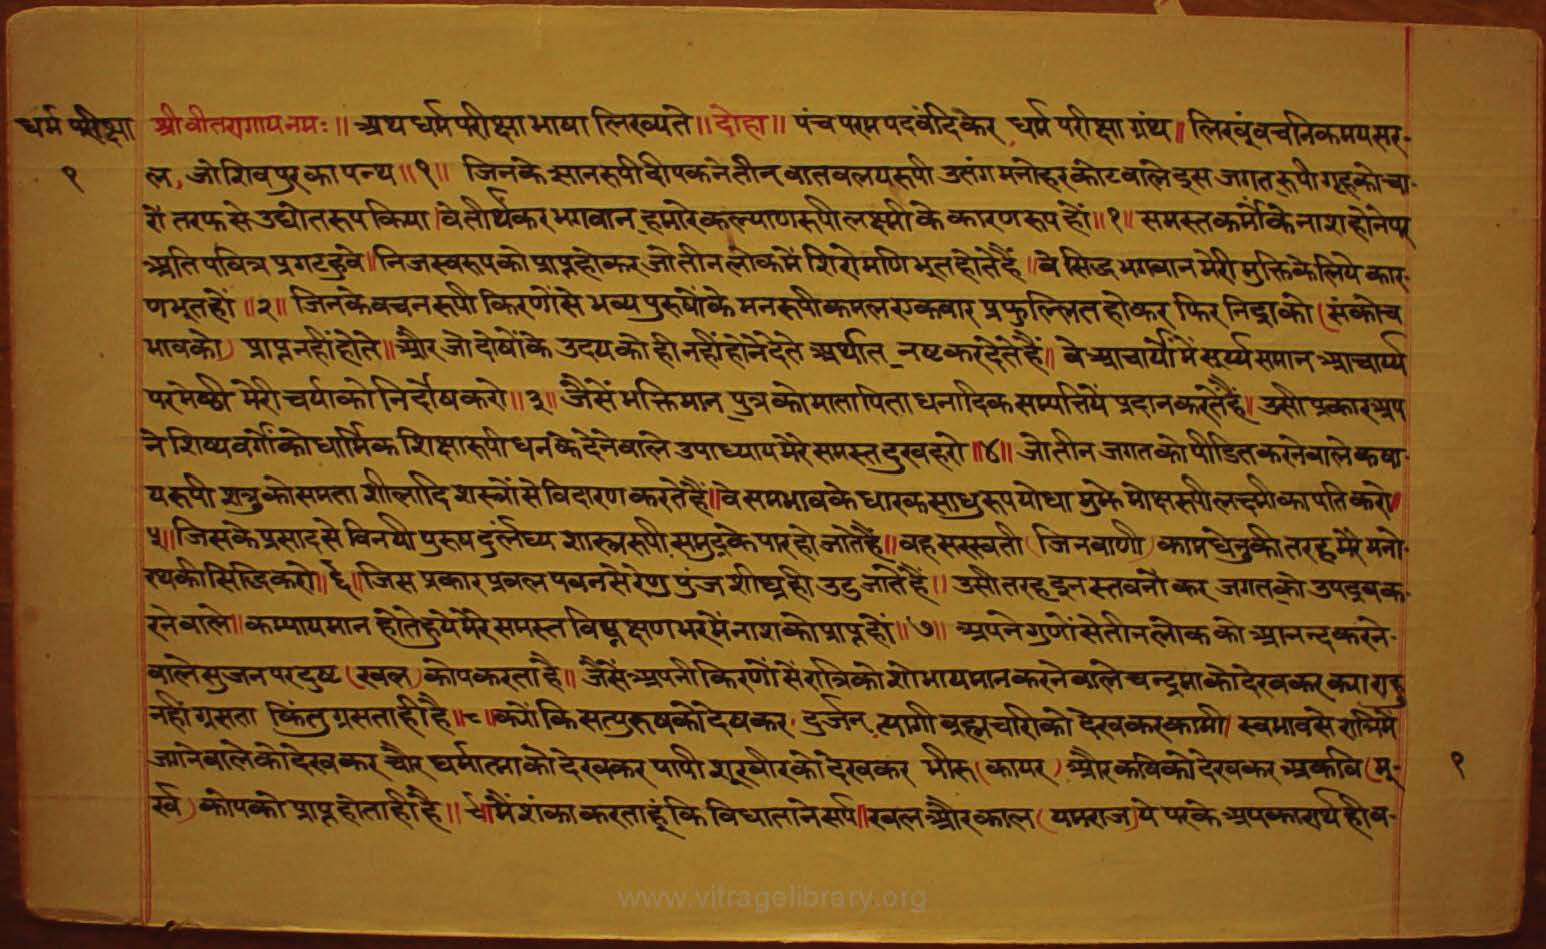 धर्म परीक्षा
१
श्री वीतरागाय नमः ॥ अथ धर्म परीक्षा भाषा लिख्यते ॥ दोहा ॥ पंच परम पद वंदि के र, धर्म परीक्षा ग्रंथ ॥ लिखूं वचनिकमय सर-
ल, जो शिव पुर का पन्थ ॥१॥ जिनके ज्ञानरूपी दीपकने तीन वातवलयरूपी उतंग मनोहर कोटवाले इस जगत् रूपी गृहको चा-
रों तरफसे उद्योतरूप किया। वे तीर्थंकर भगवान् हमारे कल्याणरूपी लक्ष्मी के कारणरूप हों॥१॥ समस्त कर्मोंके नाश होनेपर
अति पवित्र प्रगट हुवे॥ निजस्वरूपको प्राप्त होकर जो तीन लोकमें शिरोमणि भूत होते हैं॥ वे सिद्ध भगवान मेरी मुक्तिके लिये कार-
णभूत हों ॥२॥ जिनके वचनरूपी किरणोंसे भव्य पुरुषोंके मनरूपी कमल एकवार प्रफुल्लित होकर फिर निद्राको (संकोच
भावको) प्राप्त नहीं होते॥ और जो दोषोंके उदय को ही नहीं होने देते अर्थात् नष्ट कर देते हैं॥ वे आचार्योंमें सूर्य्य समान आचार्य्य
परमेष्ठी मेरी चर्याको निर्दोष करो ॥३॥ जैसें भक्तिमान् पुत्र को माता पिता धनादिक सम्पत्तियें प्रदान करते हैं॥ उसी प्रकार अप
ने शिष्य वर्गोंको धार्मिक शिक्षारूपी धनके देनेवाले उपाध्याय मेरे समस्त दुख हरो ॥४॥ जो तीन जगतको पीडित करनेवाले कषा-
यरूपी शत्रुको समता शीलादि शस्त्रोंसे विदारण करते हैं॥ वे समभावके धारक साधुरूप योधा मुझे मोक्षरूपी लक्ष्मीका पति करो॥
५॥ जिसके प्रसादसे विनयी पुरुष दुर्लंघ्य शास्त्ररूपी समुद्रके पार हो जाते हैं॥ वह सरस्वती (जिनवाणी) कामधेनुकी तरह मेरे मनो-
रथकी सिद्धि करो॥६॥ जिस प्रकार प्रबल पवनसे रेणु पुंज शीघ्र ही उड जाते हैं॥ उसी तरह इन स्तवनों कर जगत्को उपद्रव क-
रनेवाले॥ कम्पायमान होते हुये मेरे समस्त विघ्न क्षण भरमें नाशको प्राप्त हों ॥७॥ अपने गुणोंसे तीन लोक को आनन्द करने-
वाले सुजन पर दुष्ट (खल) कोप करता है॥ जैसें अपनी किरणोंसें रात्रिको शोभायमान करनेवाले चन्द्रमाको देखकर क्या राहु
नहीं ग्रसता किंतु ग्रसता ही है॥८॥ क्योंकि सत्पुरुषको देषकर, दुर्जन, त्यागी ब्रह्मचारीको देखकर कामी। स्वभावसे रात्रिमें
जागनेवालेको देखकर चौर धर्मात्माको देखकर पापी शूरवीरको देखकर भीरु (कायर) और कविको देखकर अकवि (मू-
र्ख) कोपको प्राप्त होता ही है॥९॥ मैं शंका करता हूं कि विधाताने सर्प॥ खल और काल (यमराज) ये परके अपकारार्थ ही ब-
१
www.vitragelibrary.org